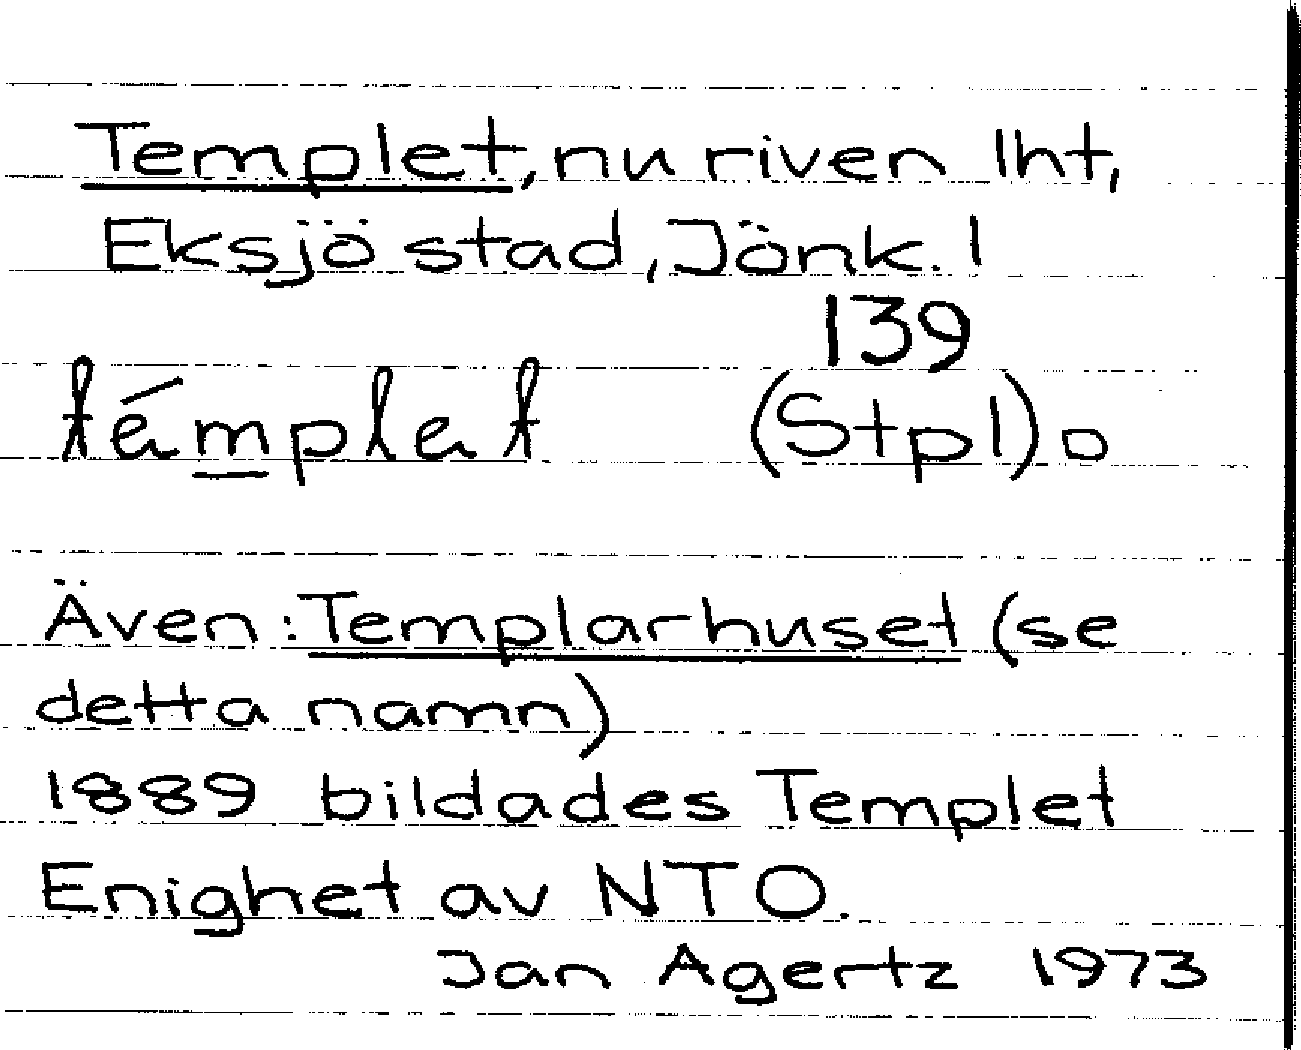 Templet, nu riven lht,
Eksjö stad, Jönk. l
139
témplet (Stpl) o
Även: Templarhuset (se
detta namn)
1889 bildades Templet
Enighet av NTO.
Jan Agertz 1973